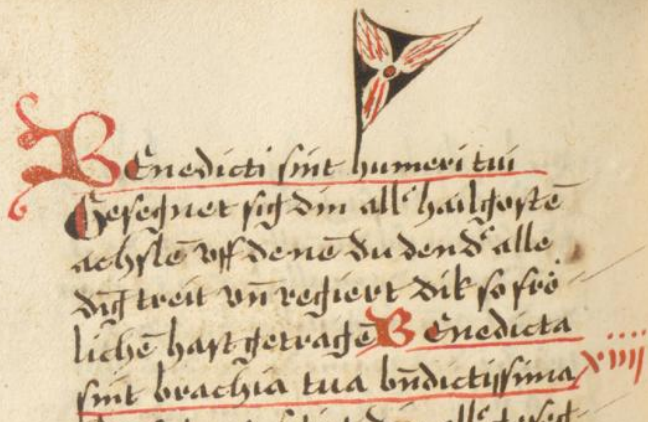 Benedicti sint humeri tui
Gesegnet sig din allˢ hailgostē
achslē vff denē du den dˢ alle
dig treit vñ regiert dik so frö
lichē hast getragē Benedicta
sint brachia tua bn̄dictissima
xiiii